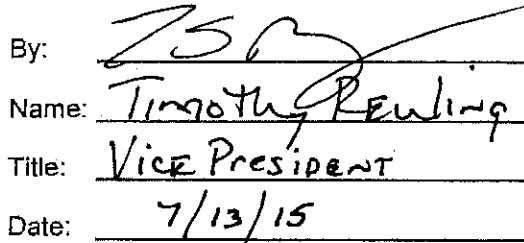 By:
Name: Timothy Rewling
Title: Vice President
Date: 7/13/15